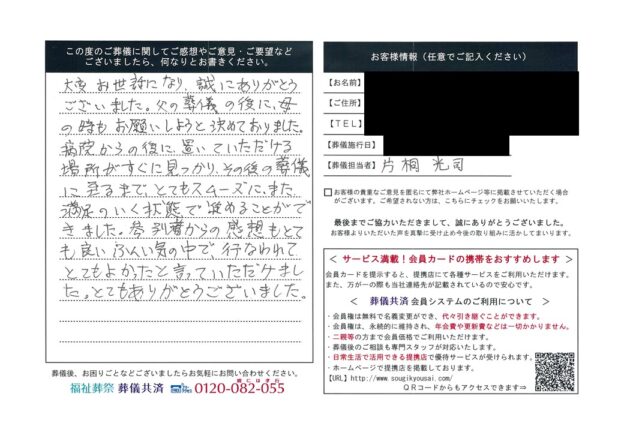 この度のご葬儀に関してご感想やご意見・ご要望など
ございましたら、何なりとお書きください。
大変お世話になり、誠にありがとう
ございました。父の葬儀の後に、母
の時もお願いしようと決めておりました。
病院からの後に、置いていただける
場所がすぐに見つかり、その後の葬儀
に至るまで、とてもスムーズに、また、
満足のいく状態で進めることがで
きました。参列者からの感想もとて
も良いふんい気の中で、行なわれて
とてもよかったと言っていただけまし
た。とてもありがとうございました。
葬儀後、お困りごとなどございましたらお気軽にお問い合わせください。
福祉葬祭 葬儀共済 0120-082-055
お客様情報（任意でご記入ください）
【お名前】
【ご住所】
【TEL】
【葬儀施行日】
【葬儀担当者】片桐 光司
□お客様の貴重なご意見を匿名にて弊社ホームページ等に掲載させていただく場合
がございます。ご希望されない方は、こちらにチェックをお願いします。
最後までご協力いただきまして、誠にありがとうございました。
お客様よりいただいた声を真摯に受け止め今後の取り組みに活かしてまいります。
＜ サービス満載！会員カードの携帯をおすすめします ＞
会員カードを提示すると、提携店にて各種サービスをご利用いただけます。
また、万が一の際も当社連絡先が記載されているので安心です。
＜ 葬儀共済 会員システムのご利用について ＞
・会員権は無料で名義変更ができ、代々引き継ぐことができます。
・会員権は、永続的に維持され、年会費や更新費などは一切かかりません。
・二親等の方まで会員価格でご利用いただけます。
・葬儀後のご相談も専門スタッフが対応いたします。
・日常生活で活用できる提携店で優待サービスが受けられます。
・ホームページで提携店を掲載しております。
【URL】http://www.sougikyousai.com/
QRコードからもアクセスできます⇒